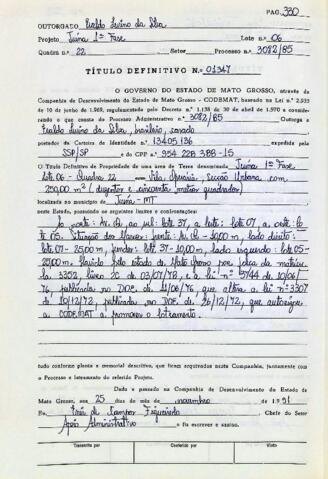 PAG. 330
OUTORGADO Evaldo Livino da Silva
Projeto Juína 1ª Fase Lote n.º 06
Quadra n.º 22 Setor Processo n.º 3082/85
TÍTULO DEFINITIVO N.º 01347
O GOVERNO DO ESTADO DE MATO GROSSO, através da
Companhia de Desenvolvimento do Estado de Mato Grosso - CODEMAT, baseado na Lei n.º 2.935
de 10 de junho de 1969, regulamentada pelo Decreto n.º 1.138 de 30 de abril de 1970 e considerando
o que consta do Processo Administrativo n.º 3082/85 Outorga a
Evaldo Livino da Silva, brasileiro, casado
portador da Carteira de Identidade n.º 13405136 expedida pela
SSP/SP e do CPF n.º 954 228 388-15
O Título Definitivo de Propriedade de uma área de Terra denominada Juína 1ª Fase
Lote 06 - Quadra 22 Vila Operária, Secção Urbana com
250,00 m² (duzentos e cinquenta metros quadrados)
localizada no município de Juína - MT
neste Estado, possuindo os seguintes limites e confrontações:
Ao norte: ao sul: lote 37, a leste: lote 07 a oeste: lote
05. frente: 10,00 m, lado direito:
lote 07 - 25,00 m, fundos: lote 37 - 10,00 m, lado esquerdo: lote 05 -
25,00 m. pelo estado de Mato Grosso por força da matrícula
3352, livro 2C de 03/07/78, e a lei nº 3744 de 10/06/
76, publicada no DOE de 11/06/76, que altera a lei nº 3307
de 10/12/72, publicada no DOE de 26/12/72, que autoriza
a CODEMAT a promover o loteamento.
tudo conforme planta e memorial descritivo, que ficam arquivados nesta Companhia, juntamente com
o Processo e loteamento do referido Projeto.
Dado e passado na Companhia de Desenvolvimento do Estado de
Mato Grosso, aos 25 dias do mês de novembro de 1991
Eu, Inês de Campos Figueiredo, Chefe do Setor
Apoio Administrativo o fiz escrever e assino.
Transcrito por Conferido por Visto